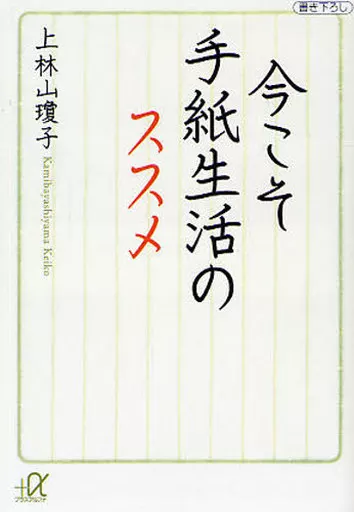 書き下ろし
今こそ
手紙生活の
ススメ
上林山瓊子
Kamibayashiyama Keiko
+α
プラスアルファ